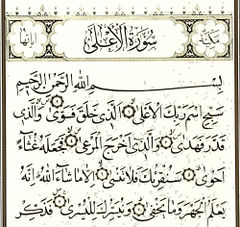 مكية سورة الأعلى آياتها
بسم الله الرحمن الرحيم
سبح اسم ربك الأعلى الذي خلق فسوى والذي
قدر فهدى والذي أخرج المرعى فجعله غثاء
أحوى سنقرئك فلا تنسى إلا ما شاء الله إنه
يعلم الجهر وما يخفى ونيسرك لليسرى فذكر